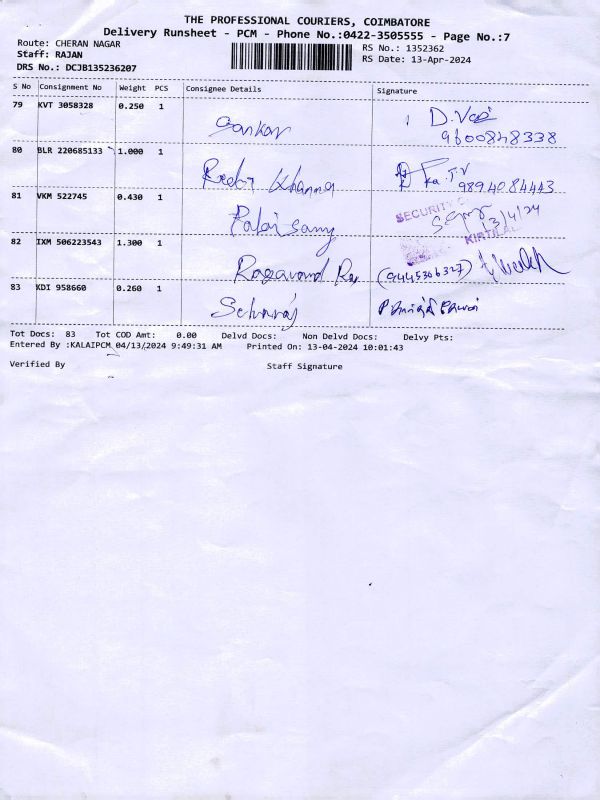 THE PROFESSIONAL COURIERS, COIMBATORE
Delivery Runsheet - PCM - Phone No.:0422-3505555 - Page No.:7
Route: CHERAN NAGAR
RS No.: 1352362
Staff: RAJAN
RS Date: 13-Apr-2024
DRS No.: DCJB135236207
S No Consignment No Weight PCS Consignee Details Signature
79 KVT 3058328 0.250 1 Sankar D.
9600848338
80 BLR 220685133 1.000 1 Khanna 9894084443
81 VKM 522745 0.430 1 Palaisamy SECURITY 13/4/24
KIRTILAL
82 IXM 506223543 1.300 1 (9445306327)
83 KDI 958660 0.260 1 Selvaraj
Tot Docs: 83 Tot COD Amt: 0.00 Delvd Docs: Non Delvd Docs: Delvy Pts:
Entered By :KALAIPCM 04/13/2024 9:49:31 AM Printed On: 13-04-2024 10:01:43
Verified By Staff Signature